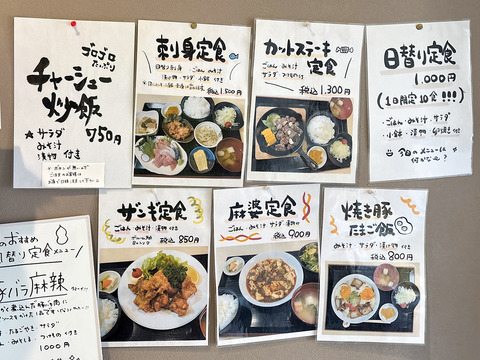 ゴロゴロ
たっぷり
チャーシュー
炒飯
750円
★サラダ
みそ汁
漬物 付き
刺身定食
ごはん・みそ汁
漬け物・サラダ・小鉢 付き
税込1,500円
カットステーキ
定食
ごはん・みそ汁
サラダ・つけもの付
税込1,300円
日替り定食
1.000円
(1日限定10食!!!)
・ごはん・みそ汁・サラダ
・小鉢・漬物・
今日のメニューは
何かな~?
ザンギ定食
ごはん・みそ汁
サラダ・漬物付
税込850円
麻婆定食
ごはん・みそ汁・サラダ・漬物付
税込900円
焼き豚
たまご飯
みそ汁・サラダ・漬け物付き
税込800円
のおすすめ
日替り定食メニュー
バラ麻辣
1000円